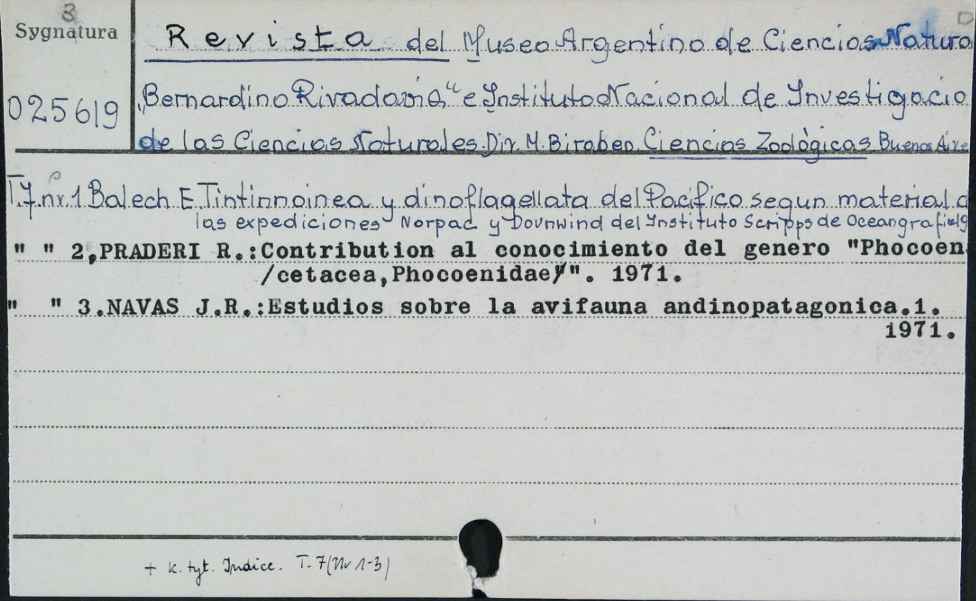 B
Sygnatura
025619
Revista del Museo Argentino de Ciencias Natura
"Bernardino Rivadavia" e Instituto Nacional de Investigacio
de las Ciencias Naturales. Dir. M. Biraben Ciencias Zoológicas Buenos Aire
T.7. nr. 1 Balech E. Tintinnoinea y dinoflagellata del Pacifico segun material d
las expediciones Norpac y Downwind del Instituto Scripps de Oceangrafia
" " 2,PRADERI R.:Contribution al conocimiento del genero "Phocoen
/cetacea,Phocoenidae/". 1971.
" " 3.NAVAS J.R.:Estudios sobre la avifauna andinopatagonica.1.
1971.
+ k. tyt. Indice. T. 7 (Nr 1-3)